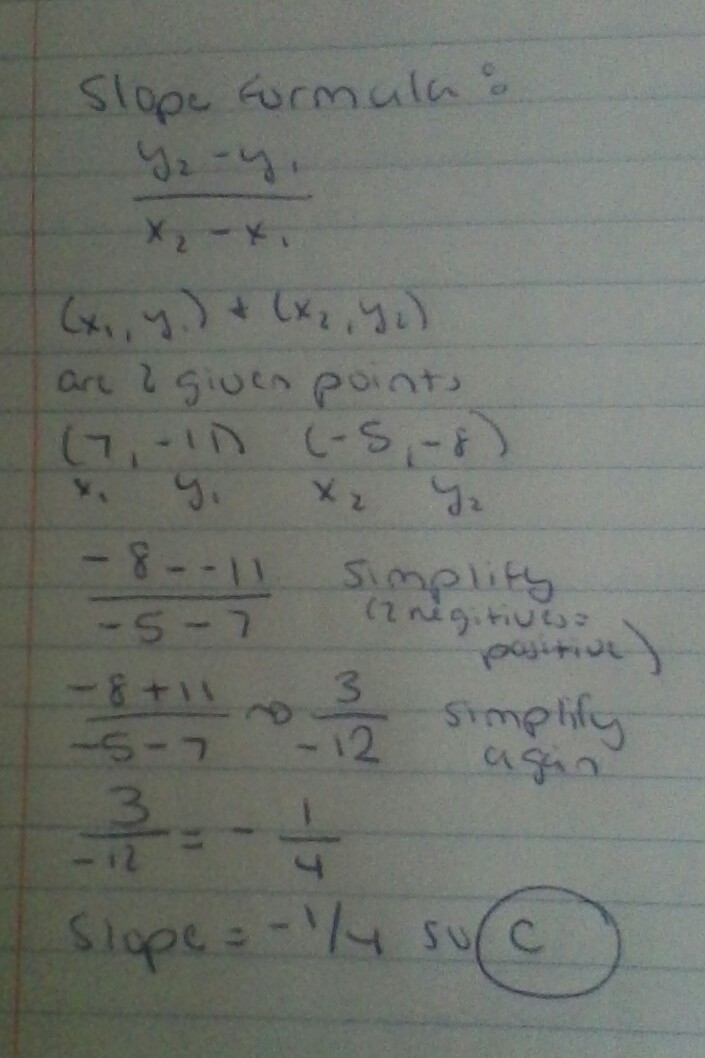 Slope Formula:
y₂ - y₁
x₂ - x₁
(x₁, y₁) + (x₂, y₂)
are 2 given points
(7, -11) (-5, -8)
x₁ y₁ x₂ y₂
-8 - -11
-5 - 7
simplify
(2 negitives =
positive)
-8 + 11
-5 - 7
→
3
-12
simplify
again
3
-12
= -
1
4
Slope = -1/4 so C